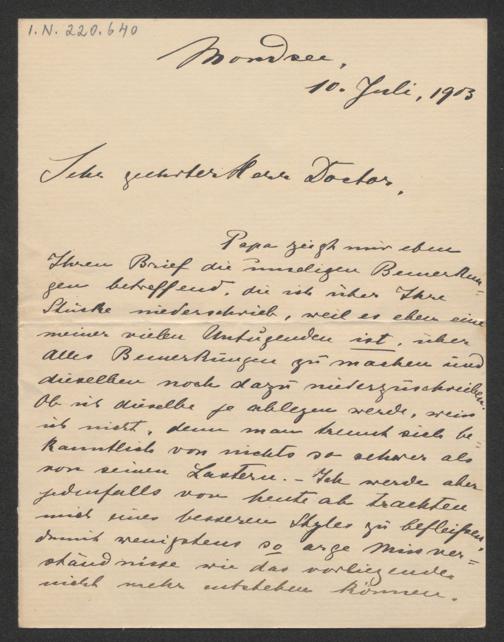 I.N. 220.640
Mondsee,
10. Juli, 1903
Sehr geehrter Herr Doctor,
Papa zeigt mir eben
Ihren Brief die unseligen Bemerkun-
gen betreffend, die ich über Ihre
Stücke niederschrieb, weil es eben eine
meiner vielen Untugenden ist, über
Alles Bemerkungen zu machen und
dieselben noch dazu niederzuschreiben.
Ob ich dieselbe je ablegen werde, weiss
ich nicht, denn man trennt sich be-
kanntlich von nichts so schwer als
von seinen Lastern. – Ich werde aber
jedenfalls von heute ab trachten
mich eines besseren Styles zu befleissen,
damit wenigstens so arge Missver-
ständnisse wie das vorliegende
nicht mehr entstehen können.